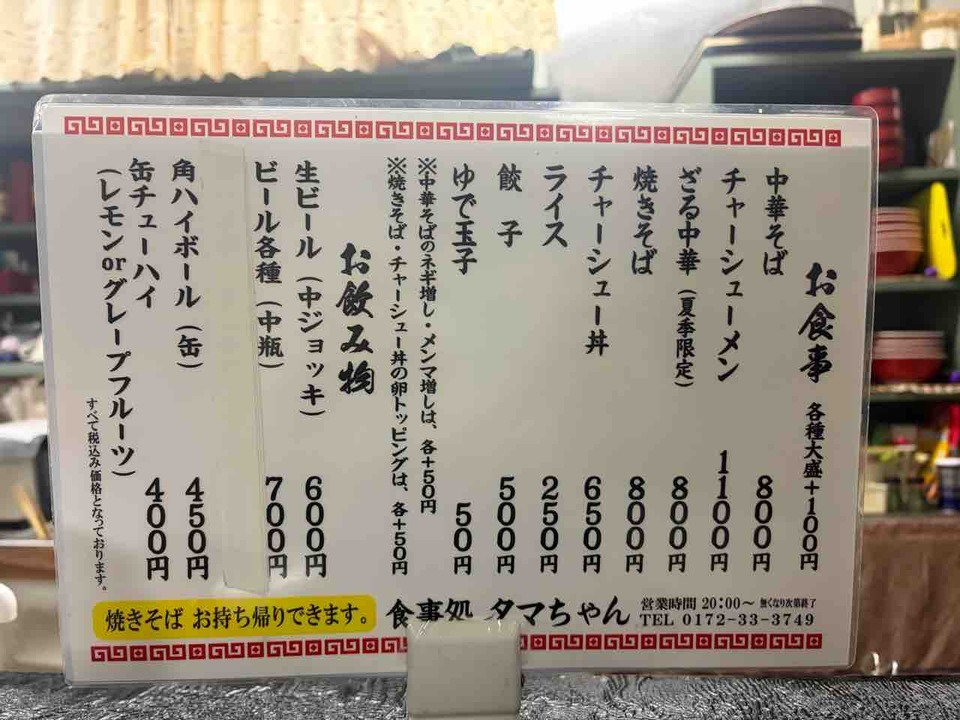 お食事 各種大盛＋100円
中華そば 800円
チャーシューメン 1100円
ざる中華（夏季限定） 800円
焼きそば 800円
チャーシュー丼 650円
ライス 250円
餃子 500円
ゆで玉子 50円
※中華そばのネギ増し・メンマ増しは、各＋50円
※焼きそば・チャーシュー丼の卵トッピングは、各＋50円
お飲み物
生ビール（中ジョッキ） 600円
ビール各種（中瓶） 700円
角ハイボール（缶） 450円
缶チューハイ 400円
（レモンorグレープフルーツ）
すべて税込み価格となっております。
焼きそば お持ち帰りできます。
食事処 タマちゃん
営業時間 20:00〜 無くなり次第終了
TEL 0172-33-3749